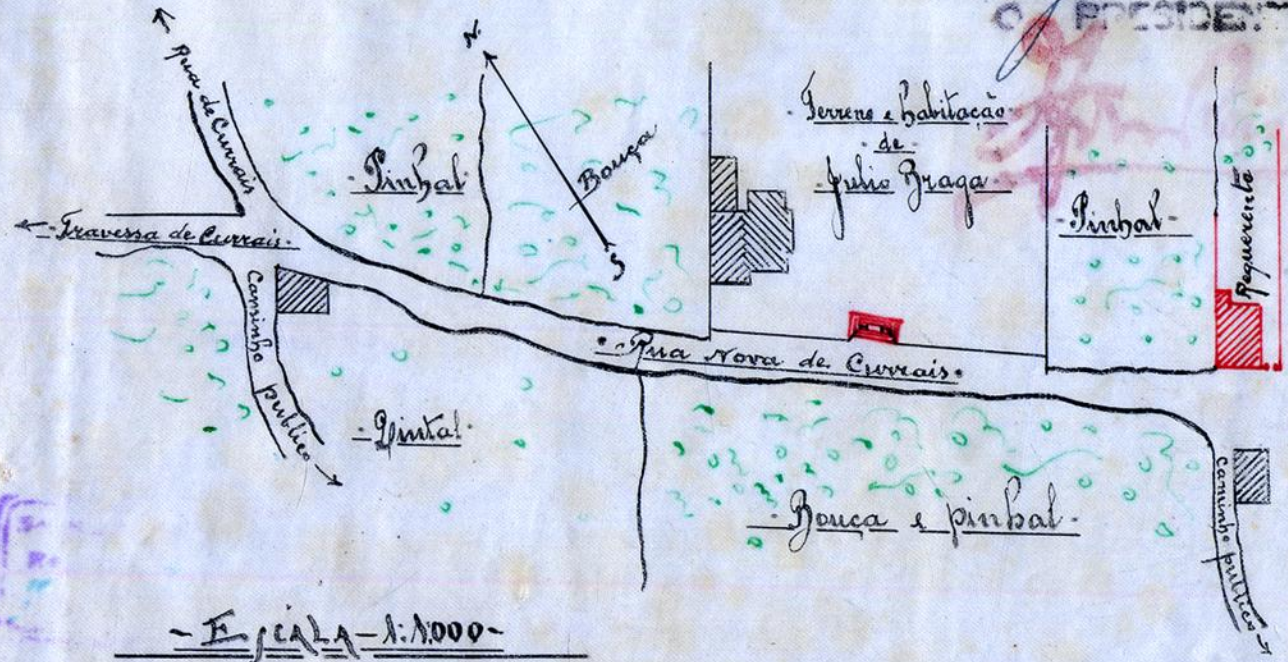 O PRESIDENT
Rua de Currais
N.
Pinhal
Bouça
S
Terreno e habitação
de
Julio Braga
Pinhal
Requerente
Travessa de Currais
Caminho publico
Rua Nova de Currais
Quintal
Bouça e pinhal
Caminho publico
- ESCALA - 1:1000 -